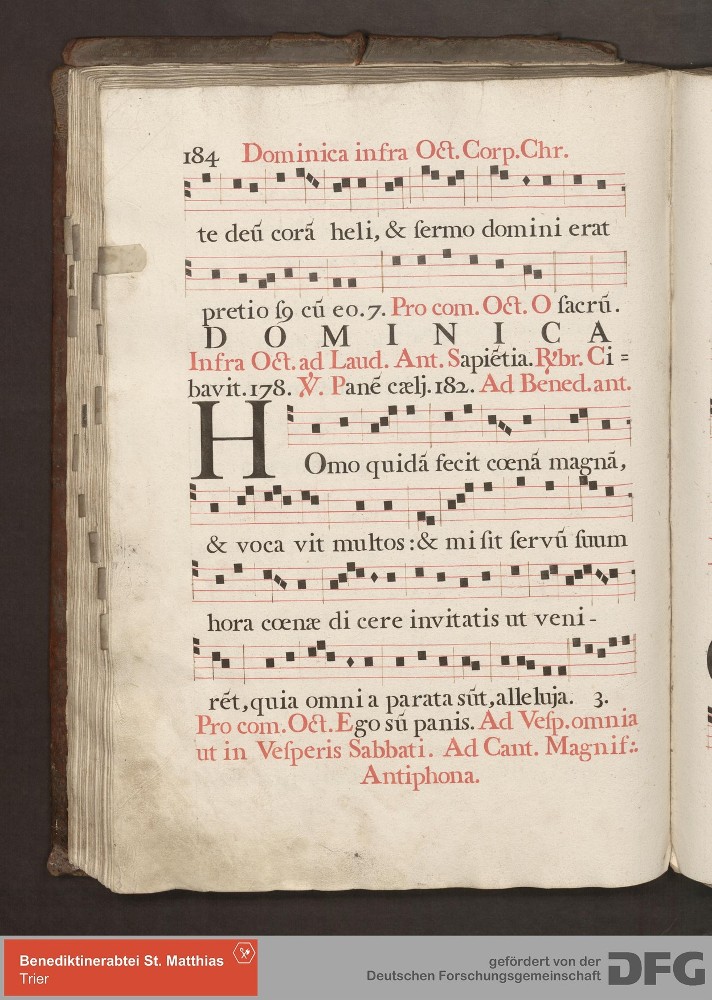 184 Dominica infra Oct. Corp. Chr.
te deū corā heli, & ſermo domini erat
pretioſꝯ cū eo. 7. Pro com. Oct. O ſacrū.
DOMINICA
Infra Oct. ad Laud. Ant. Sapiētia. R̸. br. Ci=
bavit. 178. ℣. Panē cælj. 182. Ad Bened. ant.
HOmo quidā fecit cœnā magnā,
& voca vit multos: & miſit ſervū ſuum
hora cœnæ di cere invitatis ut veni-
rēt, quia omni a parata sūt, alleluja. 3.
Pro com. Oct. Ego sū panis. Ad Veſp. omnia
ut in Veſperis Sabbati. Ad Cant. Magnif:.
Antiphona.
Benediktinerabtei St. Matthias
Trier
gefördert von der
Deutschen Forschungsgemeinschaft
DFG